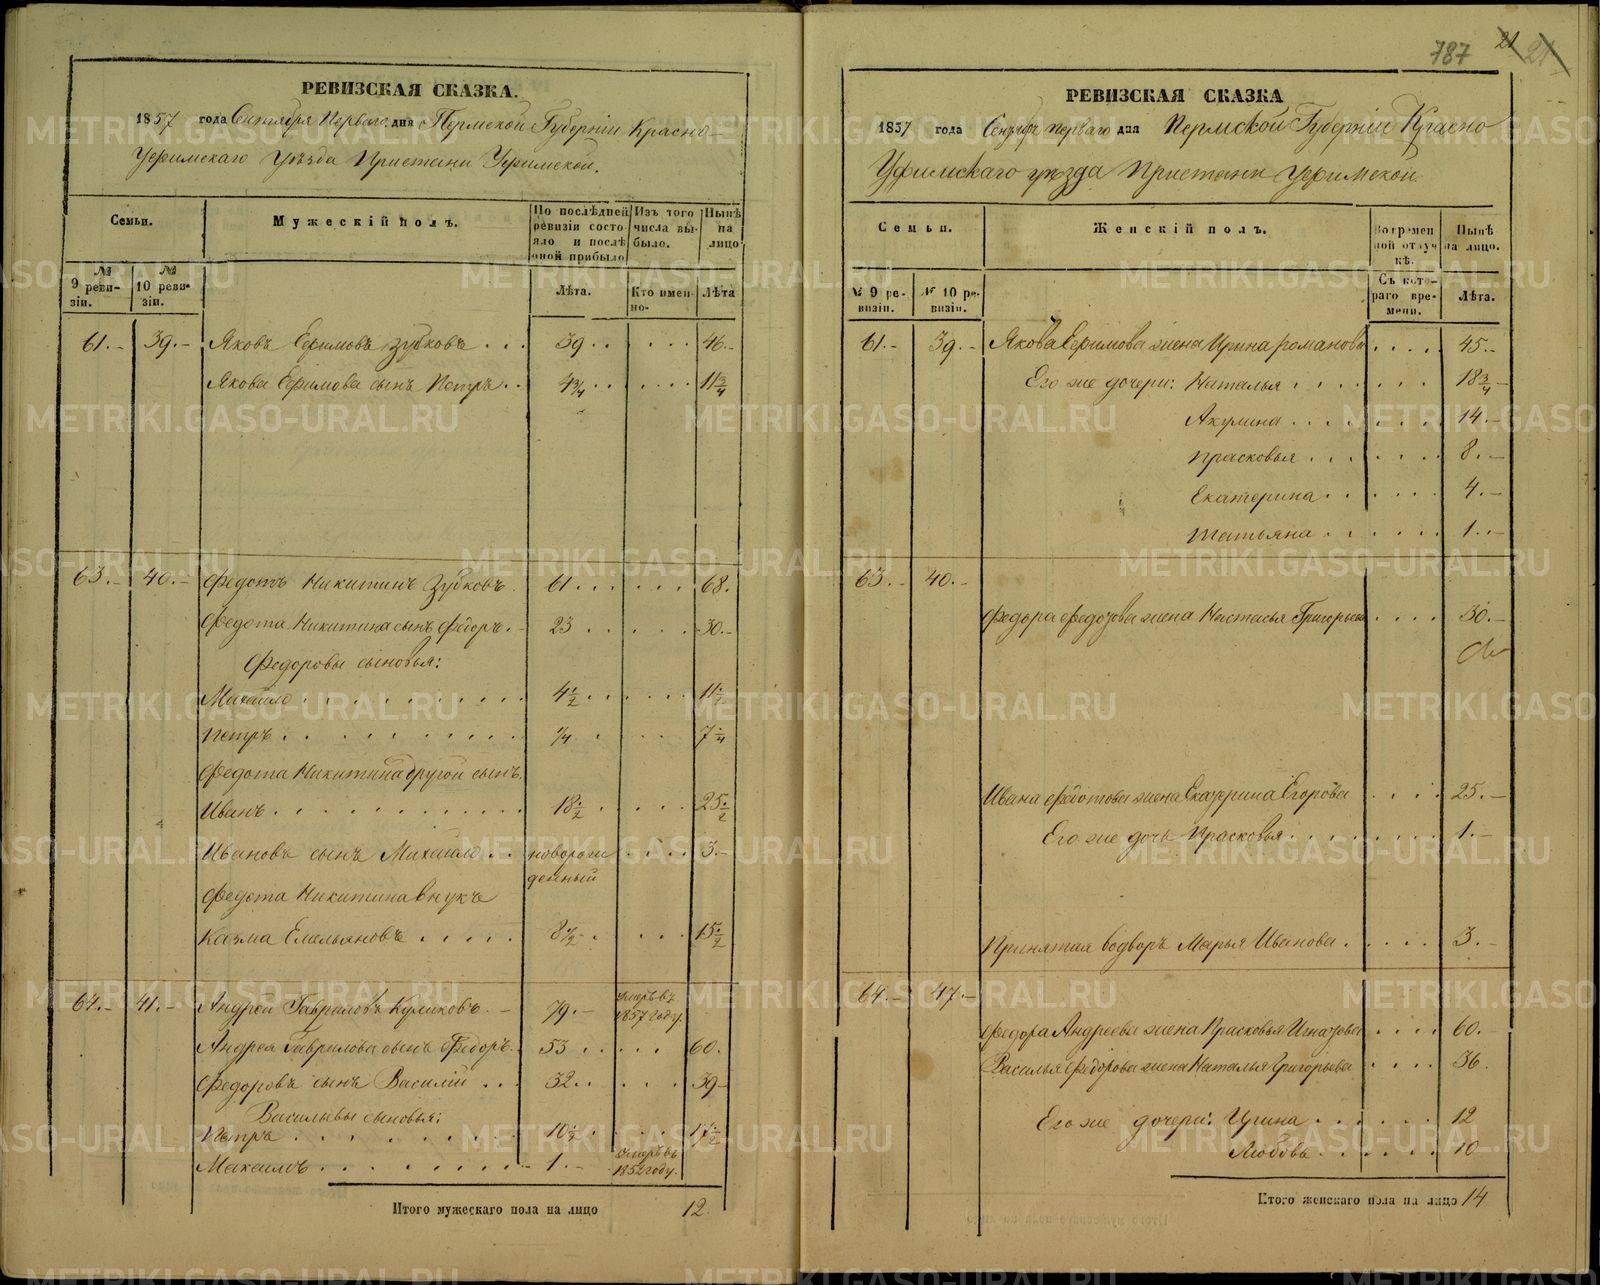 РЕВИЗСКАЯ СКАЗКА.
1857 года Сентября Перваго дня Пермской Губерніи Красно-
Уфимскаго уѣзда Пристани Уфимской.
Семьи.
Мужескій полъ.
По послѣдней ревизіи состояло и послѣ оной прибыло
Изъ того числа выбыло.
Нынѣ на лицо
№ 9 ревизіи.
№ 10 ревизіи.
Лѣта.
Кто именно.
Лѣта
61.- 39.- Яковъ Ефимовъ Зубковъ . . . 39 . . . . . 46.-
Якова Ефимова сынъ Петръ . . 4 3/4 . . . . . 11 3/4
63.- 40.- Федотъ Никитинъ Зубковъ. 61 . . . . . . 68.
Федота Никитина сынъ Федоръ. - 23 . . . . . 30.-
Федоровы сыновья:
Михайло . . . . . . . . . 4 1/2 . . . . . 11 1/2
Петръ . . . . . . . . 1/4 . . . 7 1/4
Федота Никитина другой сынъ
Иванъ . . . . . . . . . . 18 1/2 . . . . 25 1/2
Ивановъ сынъ Михайло . . новорож . . . . 3.-
денный
Федота Никитина внукъ
Казма Емельяновъ . . . . . 8 1/2 . . . . 15 1/2
64.- 41.- Андрей Гавриловъ Куликовъ. - 79.- умеръ въ
1857 году.
Андрея Гаврилова сынъ Федоръ. 53 . . . . . 60.
Федоровъ сынъ Василій . . . 32 . . . . . 39-
Васильевы сыновья:
Петръ . . . . . . . . . 10 1/2 . . . . 17 1/2
Максимъ . . . . . . . . . 1.- умеръ въ
1852 году.
Итого мужескаго пола на лицо 12.
787 21 21
РЕВИЗСКАЯ СКАЗКА
1857 года Сентября перваго дня Пермской Губерніи Красно
Уфимскаго уѣзда Пристани Уфимской.
Семьи.
Женскій полъ.
Во временной отлучкѣ.
Нынѣ на лицо.
№ 9 ревизіи.
№ 10 ревизіи.
Съ котораго времени.
Лѣта.
61.- 39.- Якова Ефимова жена Ирина романова . . . . 45.-
Его же дочери: Наталья . . . . . . . 18 3/4 -
Акулина . . . . . . . 14.-
Прасковья . . . . . . . 8.-
Екатерина . . . . . . 4.-
Татьяна . . . . . . 1.-
63.- 40.-
Федора Федотова жена Настасья Григорьева . . . . 30.-
Ивана Федотова жена Екатерина Егорова . . . . 25.-
Его же дочь Прасковья . . . . . . . 1.-
Принятая водворъ Марья Иванова . . . . . 3.-
64.- 47.-
Федора Андреева жена Прасковья Игнатьева . . . . 60.-
Василья Федорова жена Наталья Григорьева . . . . 36.
Его же дочери: Ирина . . . . . . 12
Любовь . . . . . . 10
Итого женскаго пола на лицо 14
METRIKI.GASO-URAL.RU